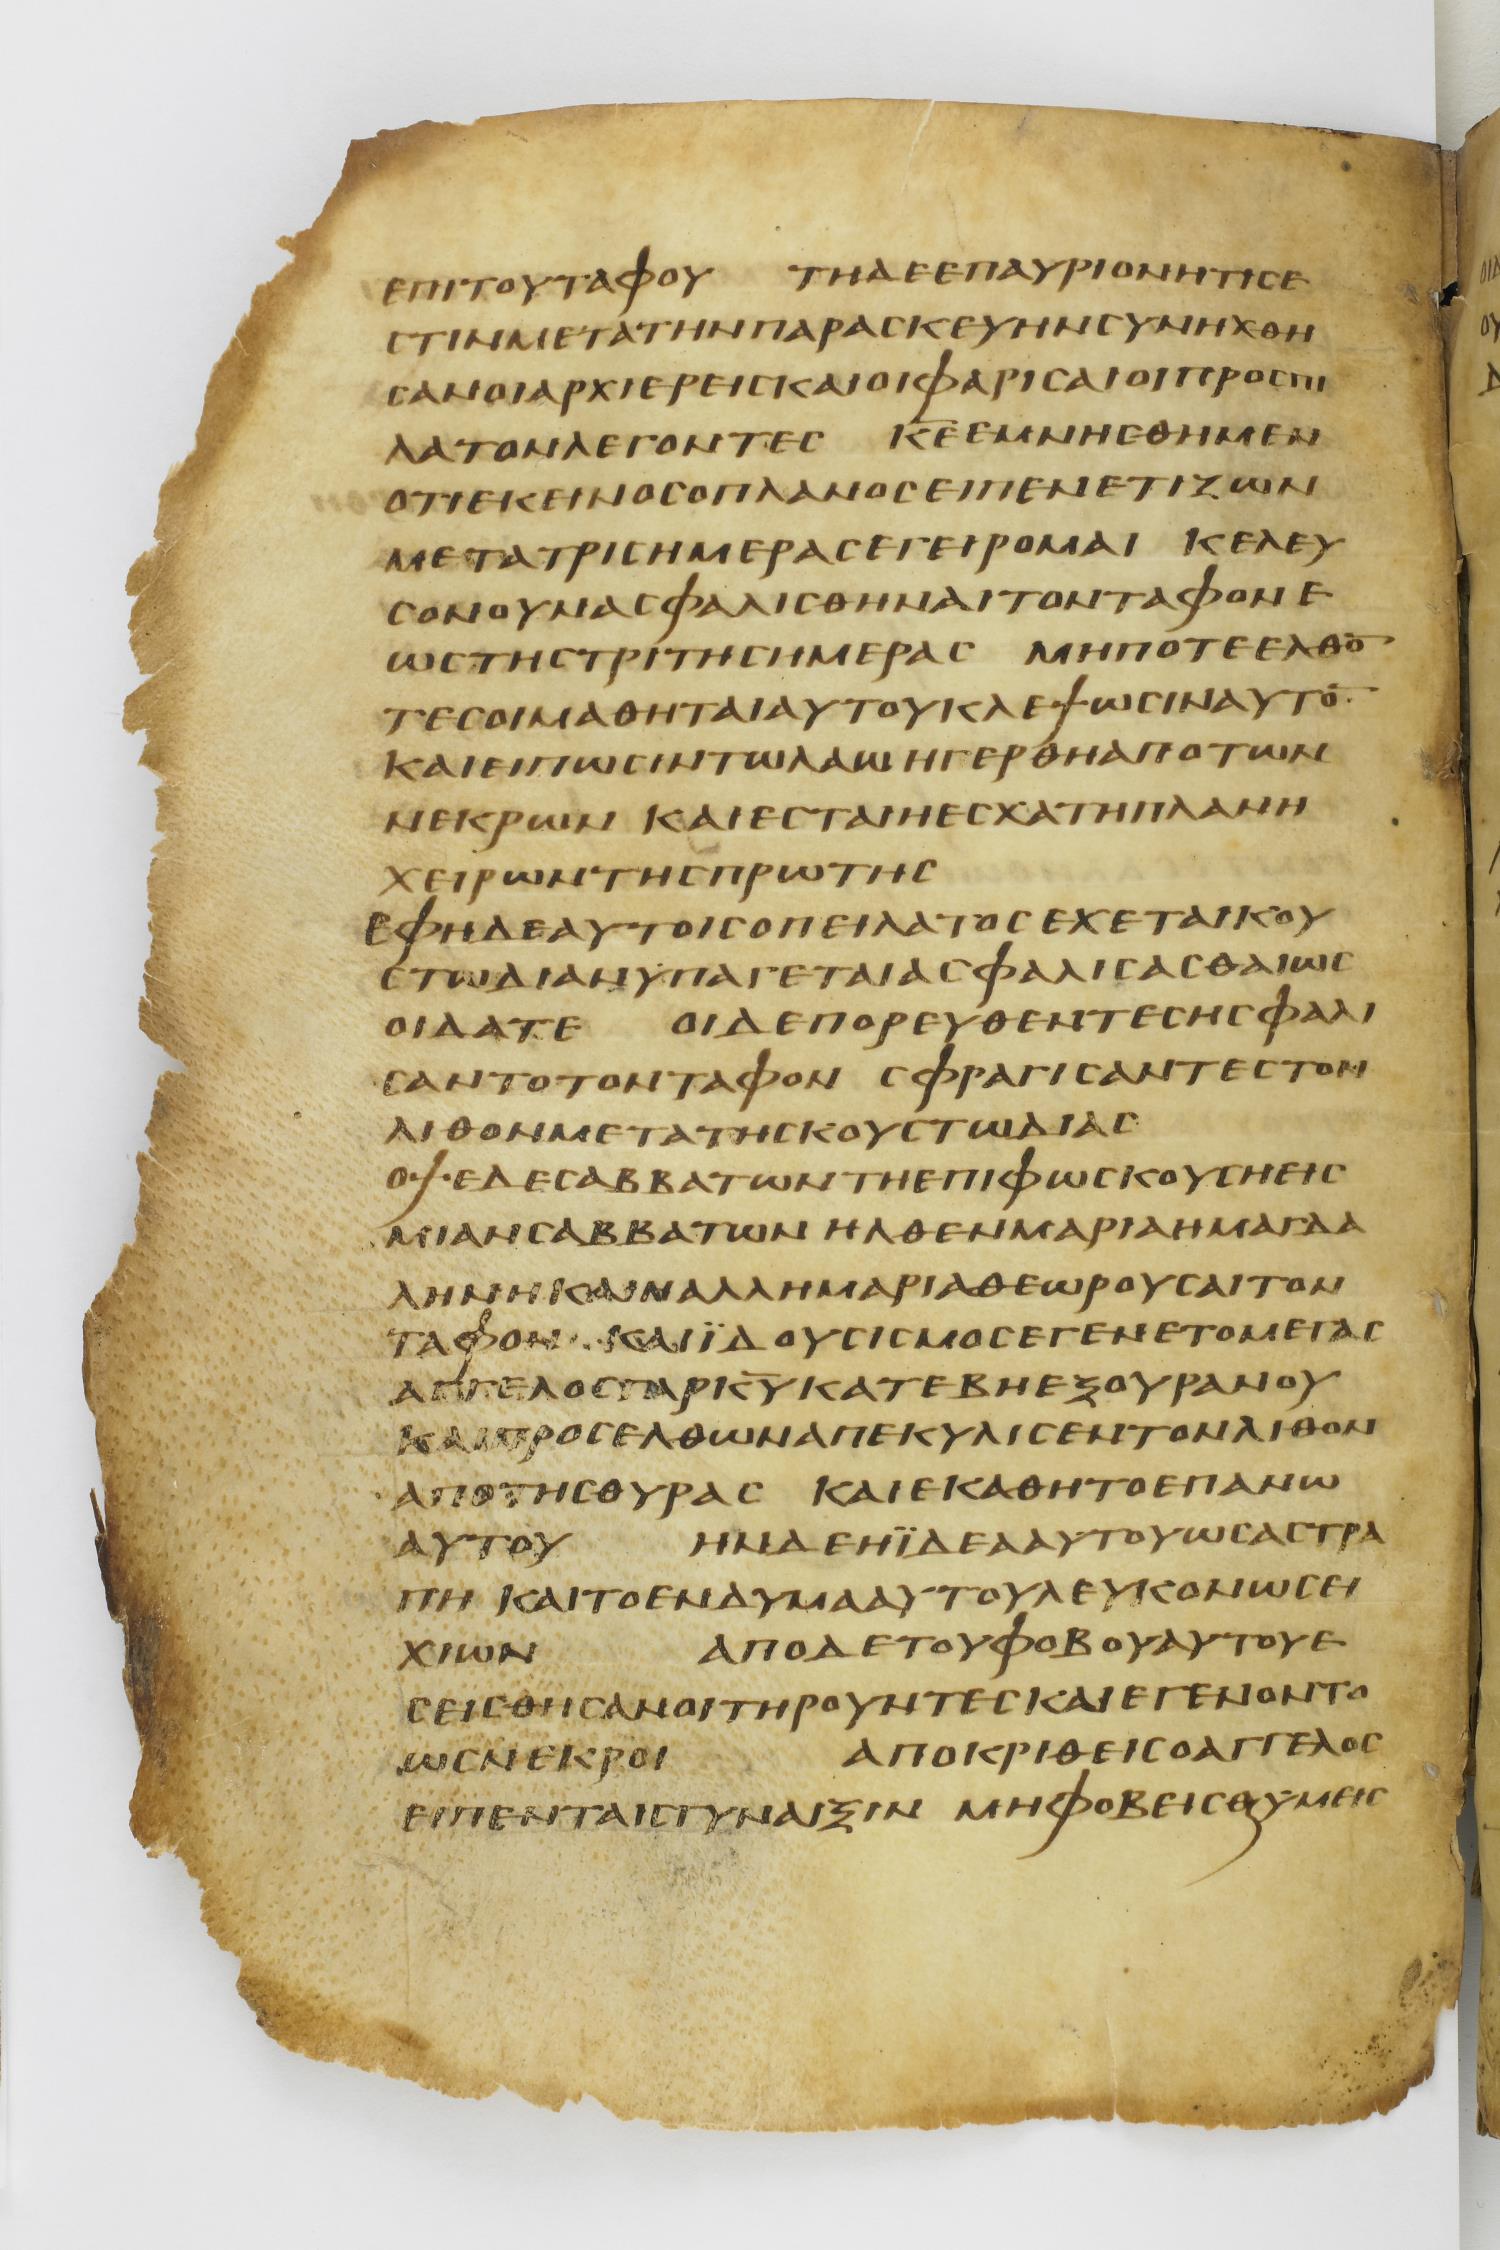 ΕΠΙΤΟΥΤΑΦΟΥ ΤΗΔΕΕΠΑΥΡΙΟΝΗΤΙСΕ
СΤΙΝΜΕΤΑΤΗΝΠΑΡΑСΚΕΥΗΝСΥΝΗΧΘΗ
СΑΝΟΙΑΡΧΙΕΡΕΙСΚΑΙΟΙΦΑΡΙСΑΙΟΙΠΡΟСΠΙ
ΛΑΤΟΝΛΕΓΟΝΤΕС Κ̅Ε̅ΕΜΝΗСΘΗΜΕΝ
ΟΤΙΕΚΕΙΝΟСΟΠΛΑΝΟСΕΙΠΕΝΕΤΙΖΩΝ
ΜΕΤΑΤΡΙСΗΜΕΡΑСΕΓΕΙΡΟΜΑΙ ΚΕΛΕΥ
СΟΝΟΥΝΑСΦΑΛΙСΘΗΝΑΙΤΟΝΤΑΦΟΝΕ
ΩСΤΗСΤΡΙΤΗСΗΜΕΡΑС ΜΗΠΟΤΕΕΛΘΟ̅
ΤΕСΟΙΜΑΘΗΤΑΙΑΥΤΟΥΚΛΕΨΩСΙΝΑΥΤΟ̅·
ΚΑΙΕΙΠΩСΙΝΤΩΛΑΩΗΓΕΡΘΗΑΠΟΤΩΝ
ΝΕΚΡΩΝ ΚΑΙΕСΤΑΙΗΕСΧΑΤΗΠΛΑΝΗ
ΧΕΙΡΩΝΤΗСΠΡΩΤΗС
ΕΦΗΔΕΑΥΤΟΙСΟΠΕΙΛΑΤΟСΕΧΕΤΑΙΚΟΥ
СΤΩΔΙΑΝΫΠΑΓΕΤΑΙΑСΦΑΛΙСΑСΘΑΙΩС
ΟΙΔΑΤΕ ΟΙΔΕΠΟΡΕΥΘΕΝΤΕСΗСΦΑΛΙ
СΑΝΤΟΤΟΝΤΑΦΟΝ СΦΡΑΓΙСΑΝΤΕСΤΟΝ
ΛΙΘΟΝΜΕΤΑΤΗСΚΟΥСΤΩΔΙΑС
ΟΨΕΔΕСΑΒΒΑΤΩΝΤΗΕΠΙΦΩСΚΟΥСΗΕΙС
ΜΙΑΝСΑΒΒΑΤΩΝ ΗΛΘΕΝΜΑΡΙΑΗΜΑΓΔΑ
ΛΗΝΗΚΑΙΗΑΛΛΗΜΑΡΙΑΘΕΩΡΟΥСΑΙΤΟΝ
ΤΑΦΟΝ· ΚΑΙΪΔΟΥСΙСΜΟСΕΓΕΝΕΤΟΜΕΓΑС
ΑΓΓΕΛΟСΓΑΡΚ̅Υ̅ΚΑΤΕΒΗΕΞΟΥΡΑΝΟΥ
ΚΑΙΠΡΟСΕΛΘΩΝΑΠΕΚΥΛΙСΕΝΤΟΝΛΙΘΟΝ
ΑΠΟΤΗСΘΥΡΑС ΚΑΙΕΚΑΘΗΤΟΕΠΑΝΩ
ΑΥΤΟΥ ΗΝΔΕΗΪΔΕΑΑΥΤΟΥΩСΑСΤΡΑ
ΠΗ ΚΑΙΤΟΕΝΔΥΜΑΑΥΤΟΥΛΕΥΚΟΝΩСΕΙ
ΧΙΩΝ ΑΠΟΔΕΤΟΥΦΟΒΟΥΑΥΤΟΥΕ
СΕΙСΘΗСΑΝΟΙΤΗΡΟΥΝΤΕСΚΑΙΕΓΕΝΟΝΤΟ
ΩСΝΕΚΡΟΙ ΑΠΟΚΡΙΘΕΙСΟΑΓΓΕΛΟС
ΕΙΠΕΝΤΑΙСΓΥΝΑΙΞΙΝ ΜΗΦΟΒΕΙСΘΥΜΕΙС